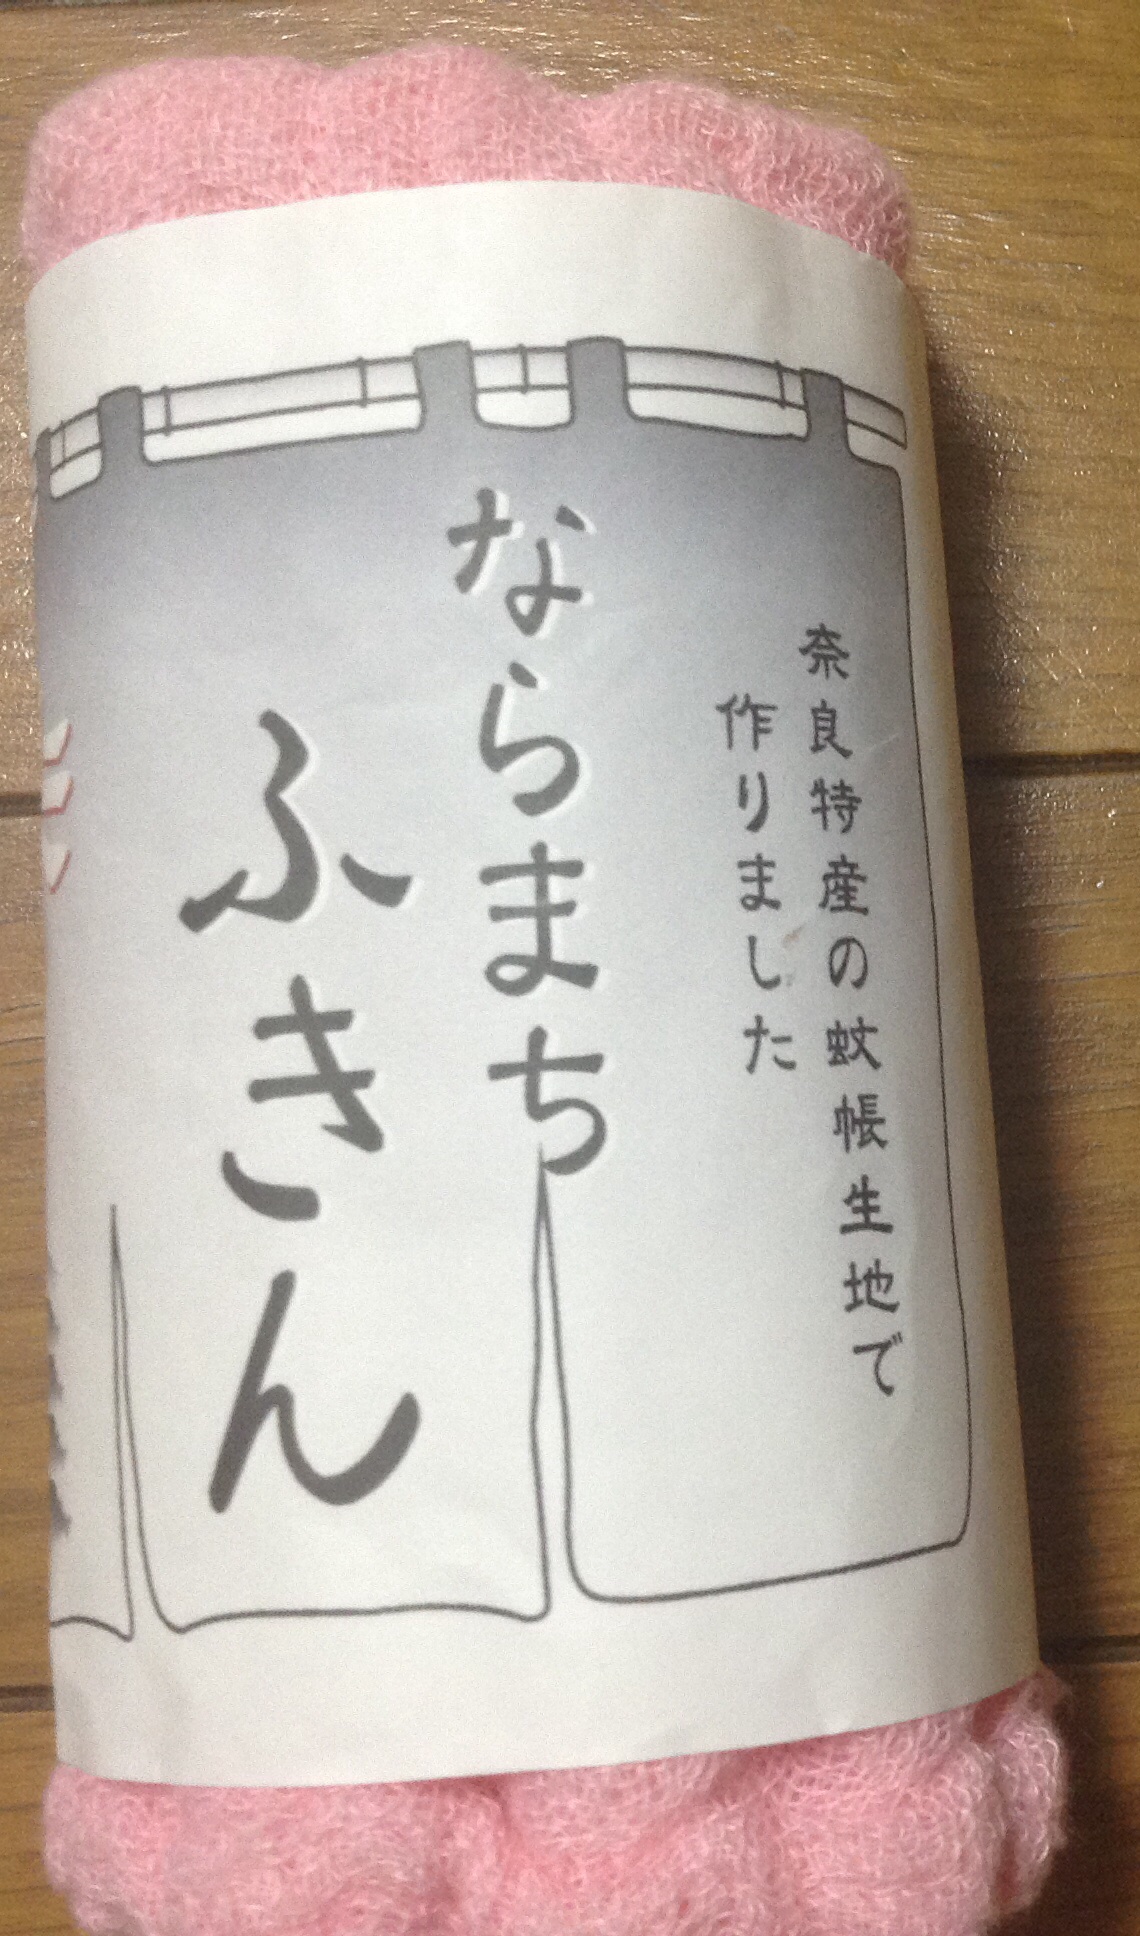 奈良特産の蚊帳生地で
作りました
ならまち
ふきん